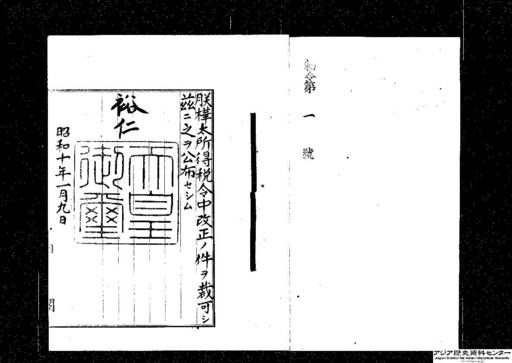 勅令第一號
朕樺太所得税令中改正ノ件ヲ裁可シ
茲ニ之ヲ公布セシム
裕仁
天皇御璽
昭和十年一月九日
内閣
アジア歴史資料センター
Japan Center for Asian Historical Records